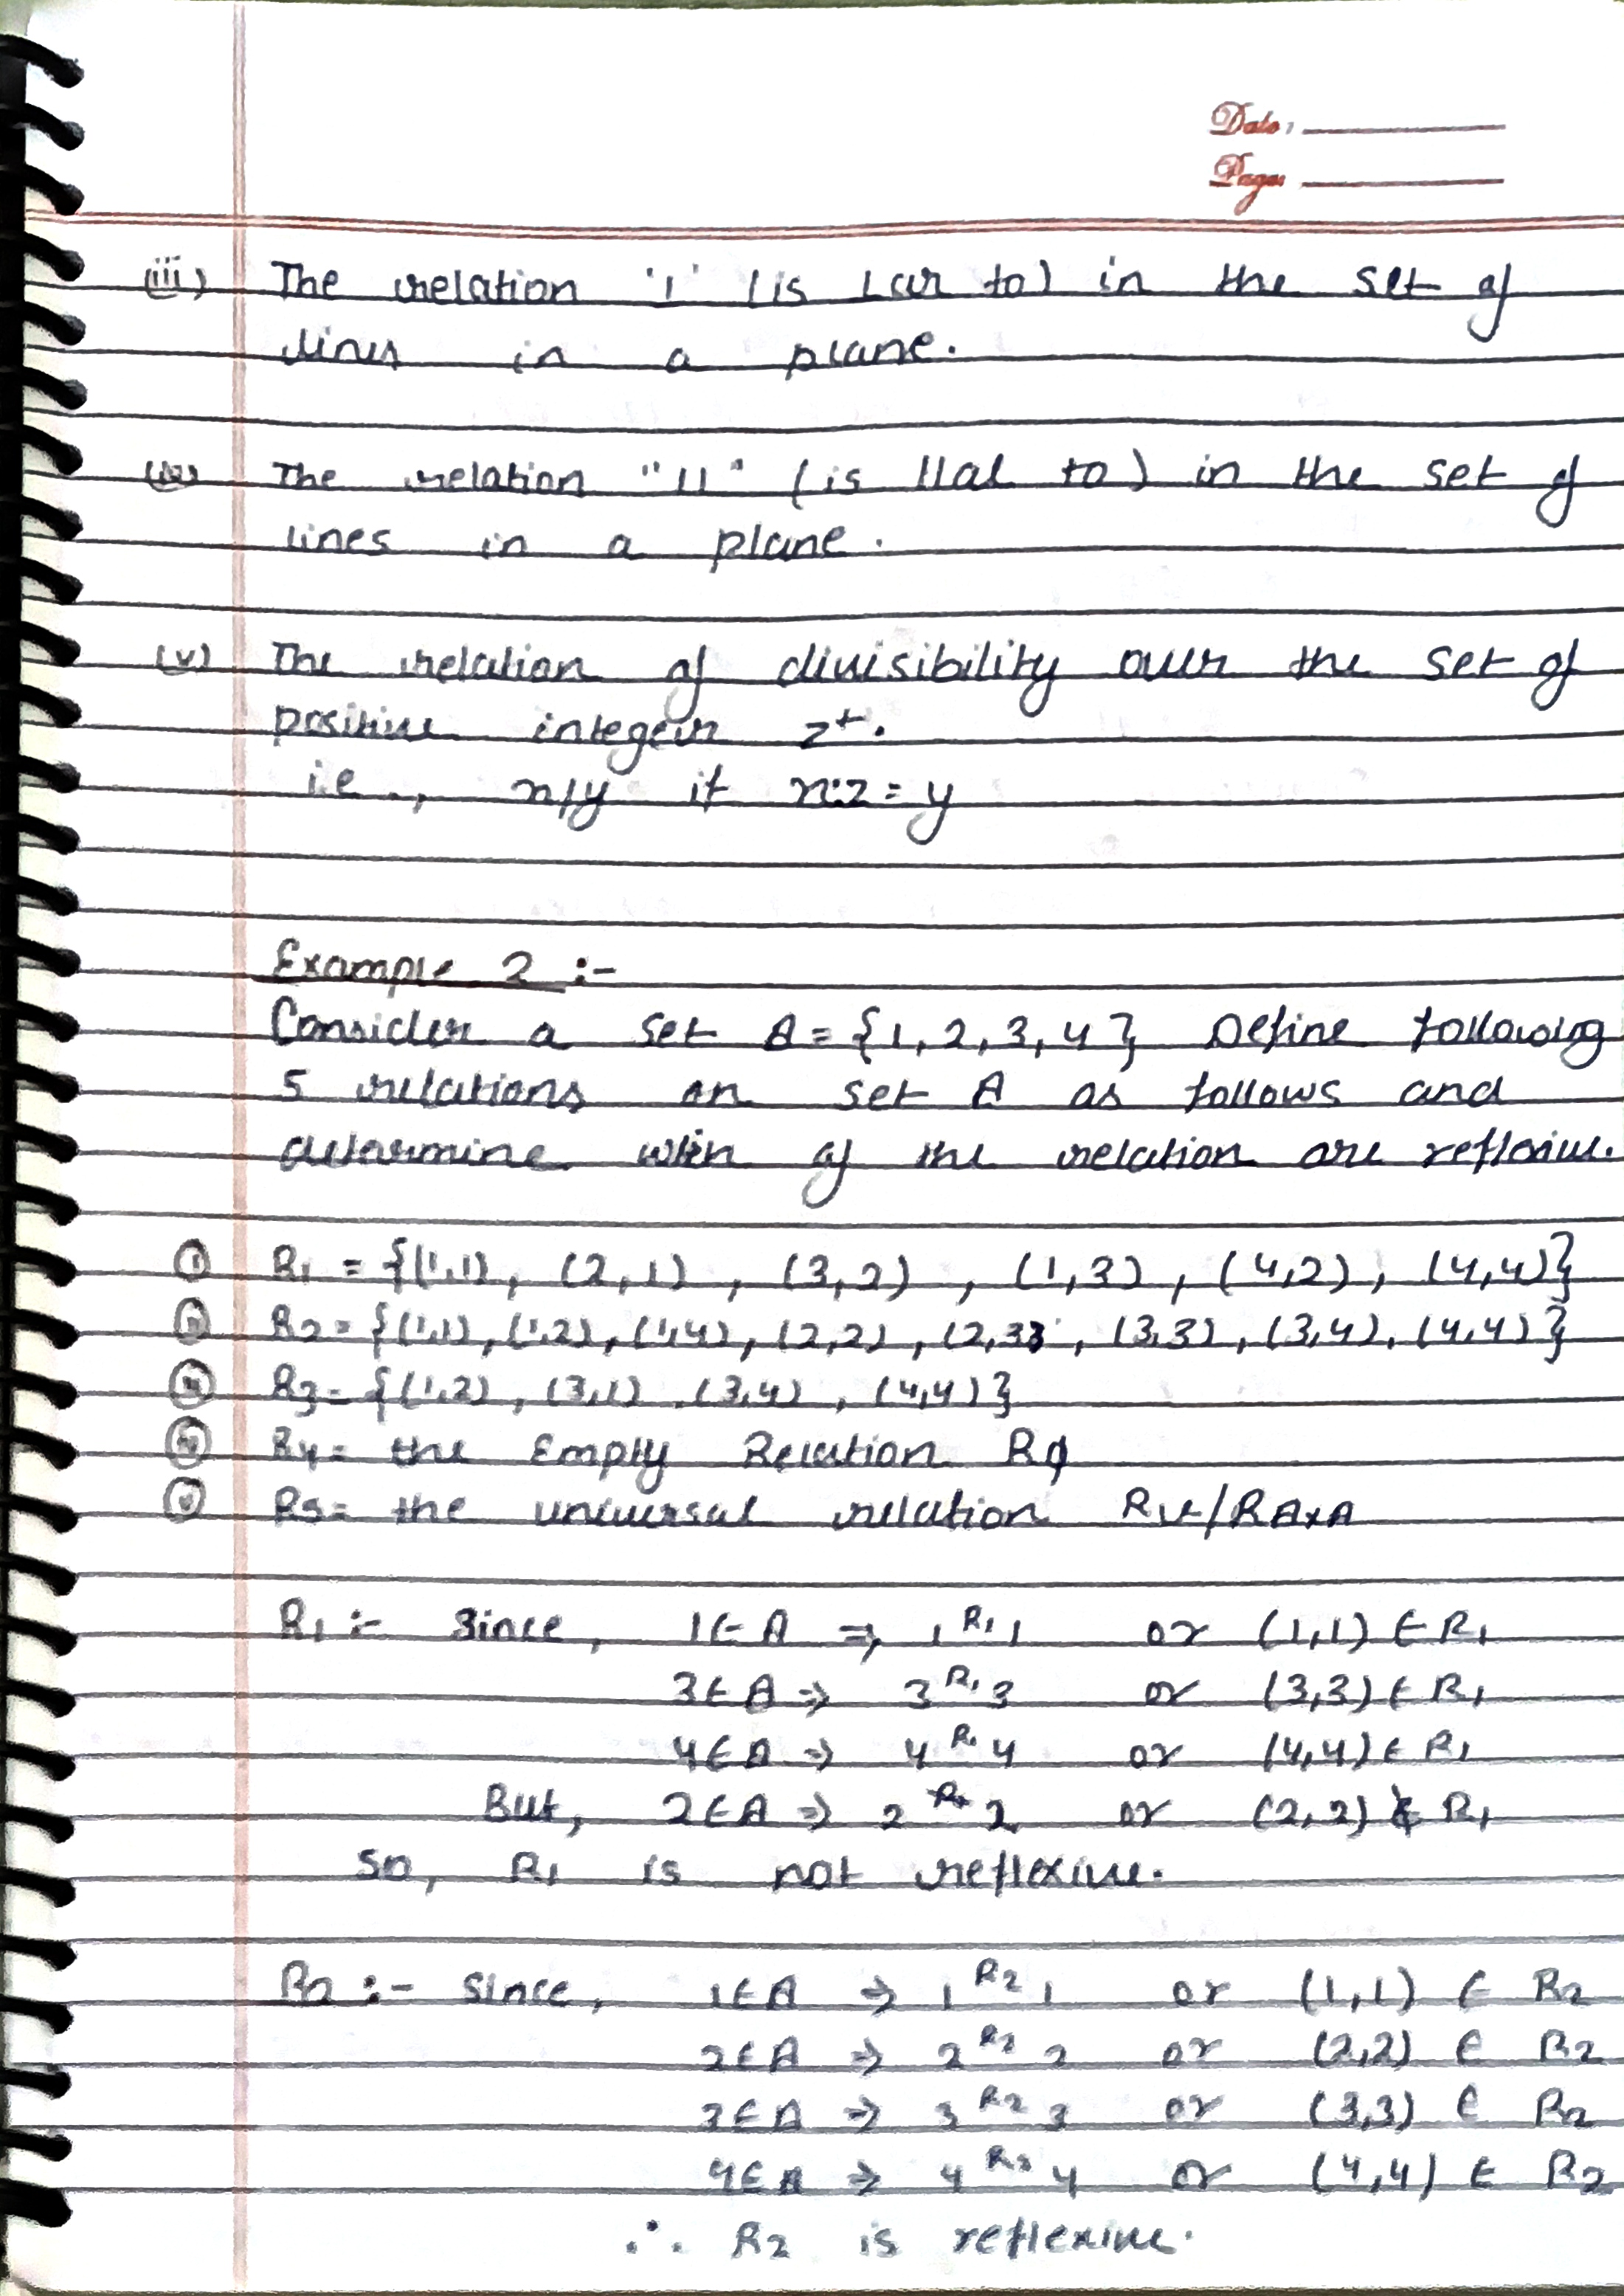 Date:
Page:
(iii) The relation '⊥' (is ⊥ar to) in the set of
lines in a plane.
(iv) The relation "||" (is ||al to) in the set of
lines in a plane.
(v) The relation of divisibility over the set of
positive integers z+.
i.e., x/y if x·z = y
Example 2 :-
Consider a set A = {1, 2, 3, 4} Define following
5 relations on set A as follows and
determine of the relation are reflexive.
(i) R1 = {(1,1), (2,1), (3,2), (1,3), (4,2), (4,4)}
(ii) R2 = {(1,1), (1,2), (1,4), (2,2), (2,3), (3,3), (3,4), (4,4)}
(iii) R3 = {(1,2), (3,1), (3,4), (4,4)}
(iv) R4 = the Empty Relation Rϕ
(v) R5 = the universal relation Ru/RA×A
R1 :- Since, 1∈A ⇒ 1 R1 1 or (1,1) ∈ R1
3∈A ⇒ 3 R1 3 or (3,3) ∈ R1
4∈A ⇒ 4 R1 4 or (4,4) ∈ R1
But, 2∈A ⇒ 2 R̸1 2 or (2,2) ∉ R1
So, R1 is not reflexive.
R2 :- Since, 1∈A ⇒ 1 R2 1 or (1,1) ∈ R2
2∈A ⇒ 2 R2 2 or (2,2) ∈ R2
3∈A ⇒ 3 R2 3 or (3,3) ∈ R2
4∈A ⇒ 4 R2 4 or (4,4) ∈ R2
∴ R2 is reflexive.